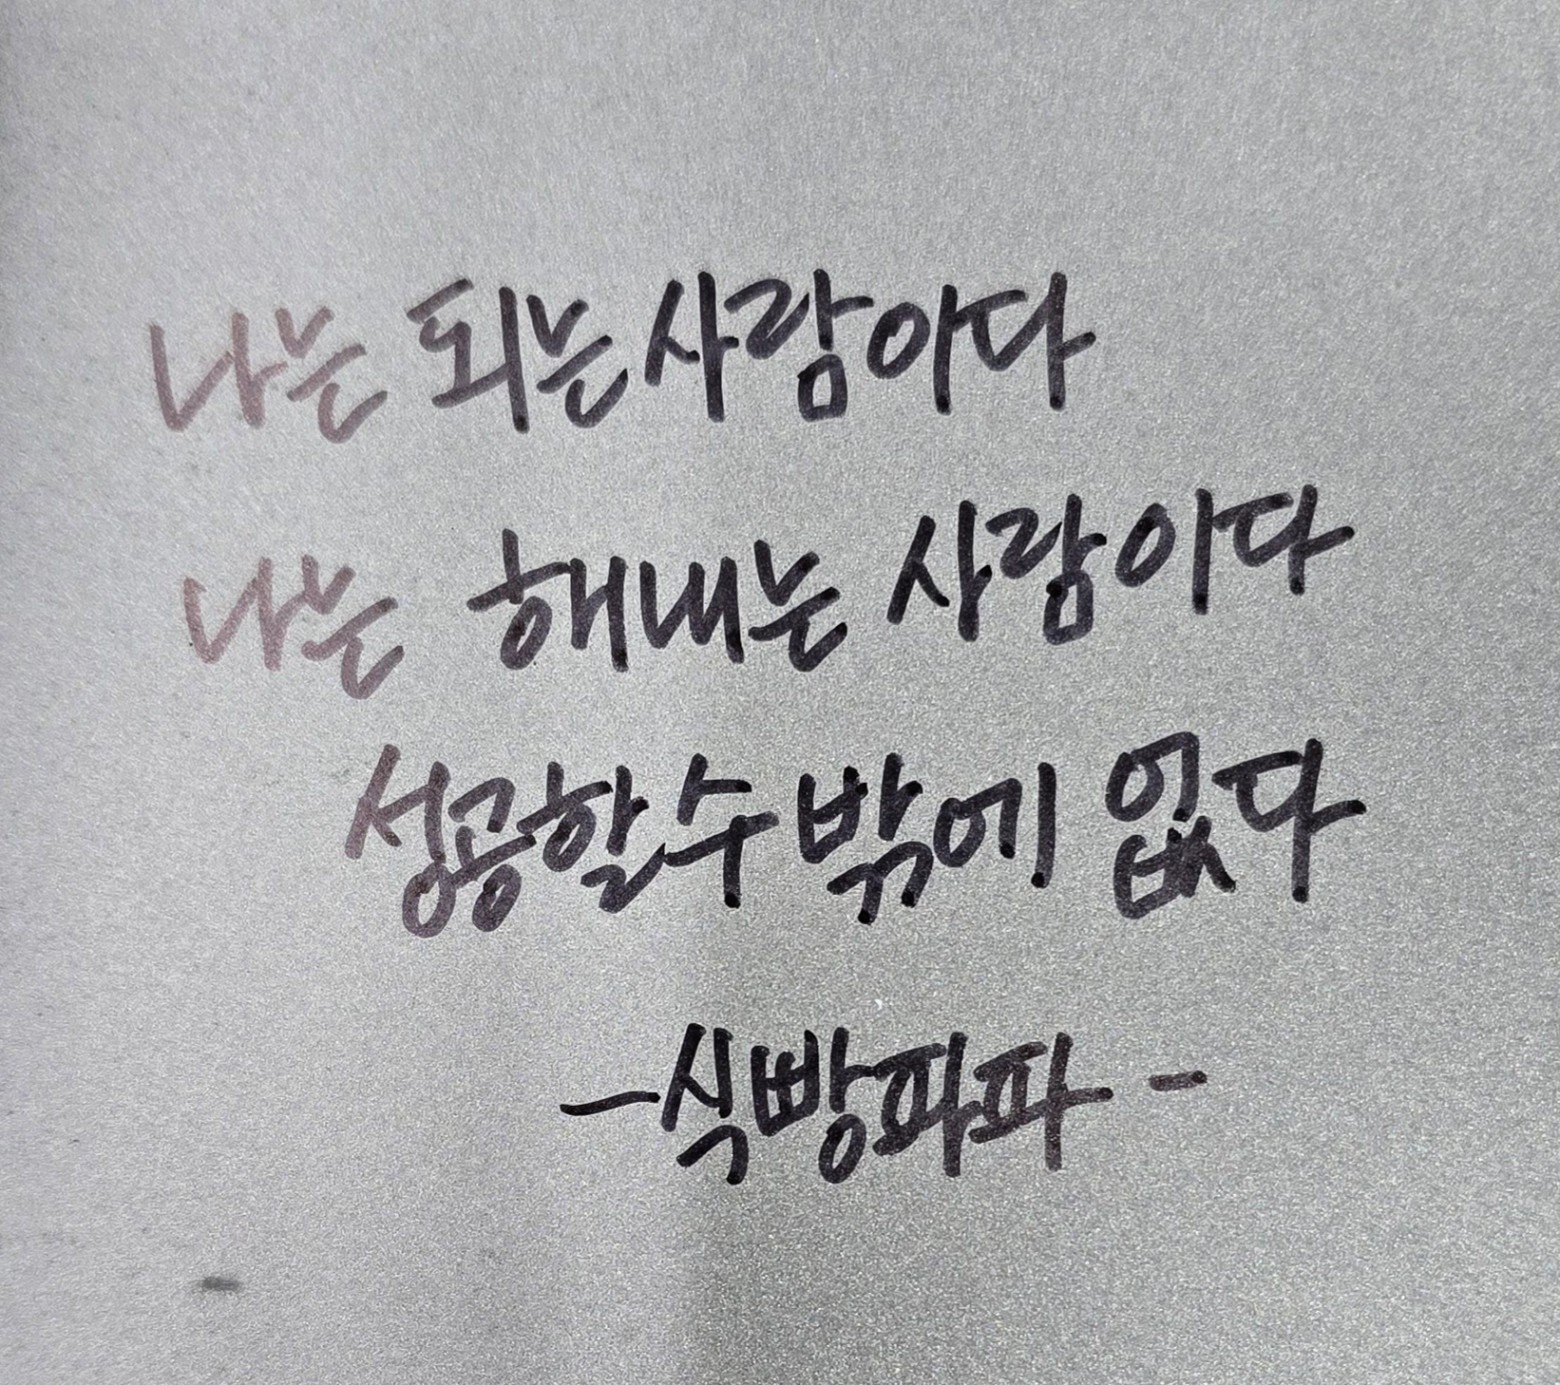 나는 되는 사람이다
나는 해내는 사람이다
성공할 수 밖에 없다
-식빵파파-